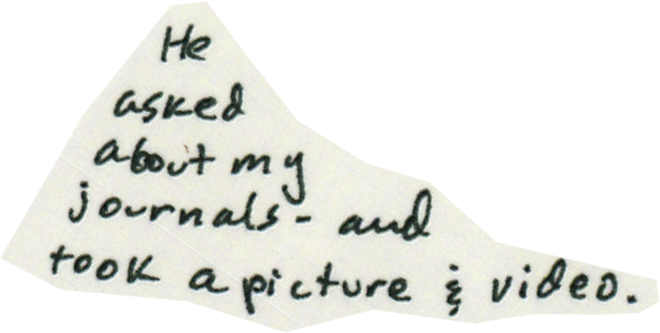 He
asked
about my
journals - and
took a picture & video.